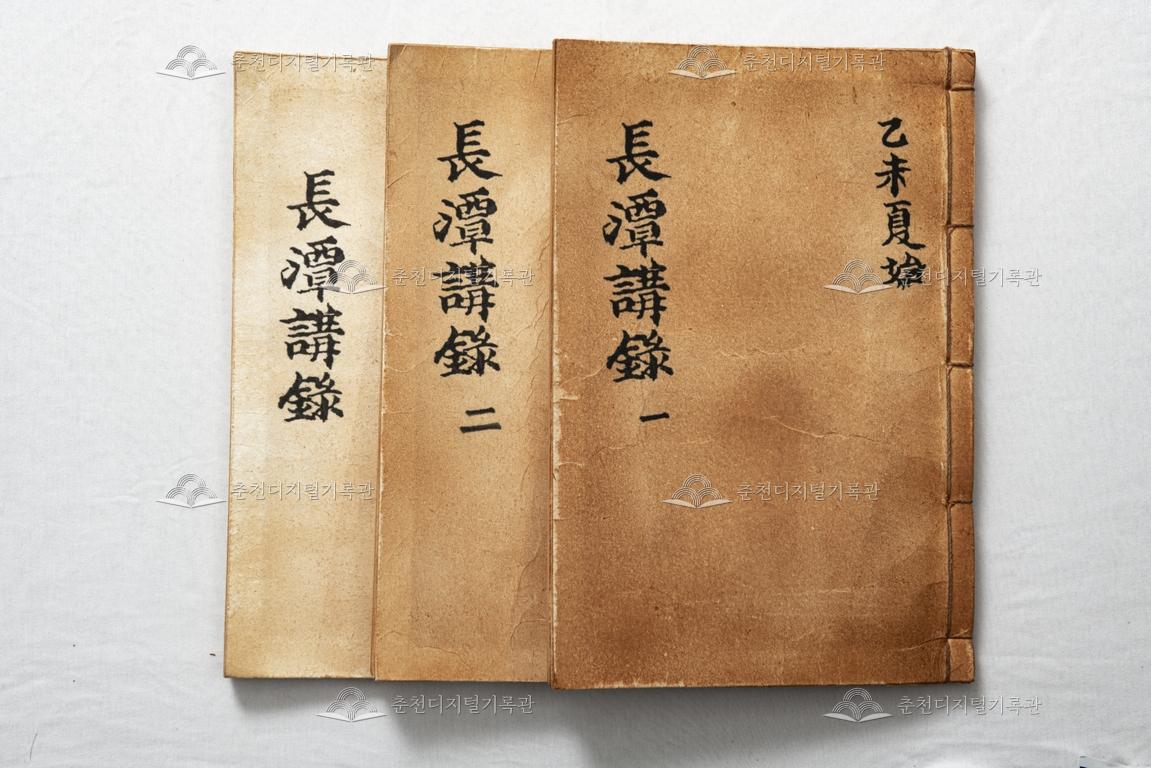 乙未夏始
長潭講錄
一
長潭講錄
二
長潭講錄
춘천디지털기록관
춘천디지털기록관
춘천디지털기록관
춘천디지털기록관
춘천디지털기록관
춘천디지털기록관
춘천디지털기록관
춘천디지털기록관